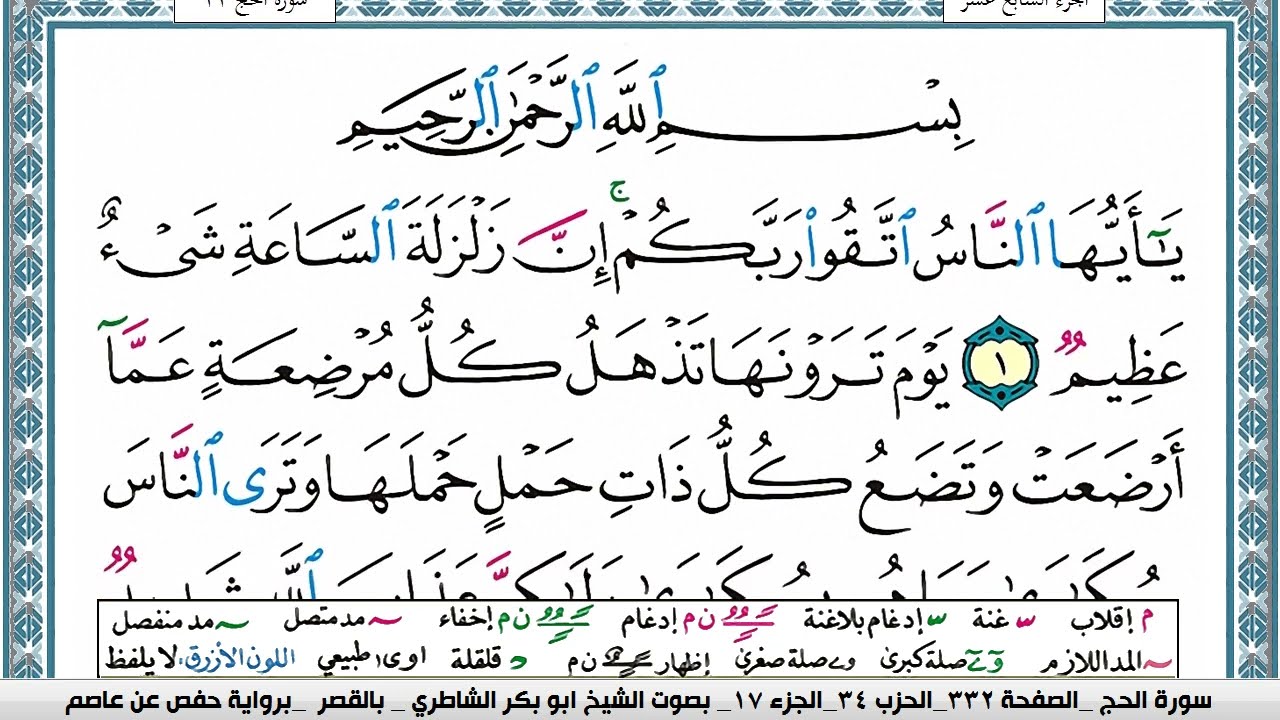 الجزء السابع عشر
سورة الحج ٢٢
بِسْمِ ٱللَّهِ ٱلرَّحْمَٰنِ ٱلرَّحِيمِ
يَٰٓأَيُّهَا ٱلنَّاسُ ٱتَّقُوا۟ رَبَّكُمْ ۚ إِنَّ زَلْزَلَةَ ٱلسَّاعَةِ شَىْءٌ
عَظِيمٌ ١ يَوْمَ تَرَوْنَهَا تَذْهَلُ كُلُّ مُرْضِعَةٍ عَمَّآ
أَرْضَعَتْ وَتَضَعُ كُلُّ ذَاتِ حَمْلٍ حَمْلَهَا وَتَرَى ٱلنَّاسَ
م إقلاب غنة إدغام بلاغنة ن م إدغام ن م إخفاء مد متصل مد منفصل
المد اللازم صلة كبرى صلة صغرى إظهار ن م قلقلة طبيعي اللون الأزرق، لا يلفظ
سورة الحج _الصفحة ٣٣٢_الحزب ٣٤_الجزء ١٧_ بصوت الشيخ ابو بكر الشاطري _ بالقصر _برواية حفص عن عاصم